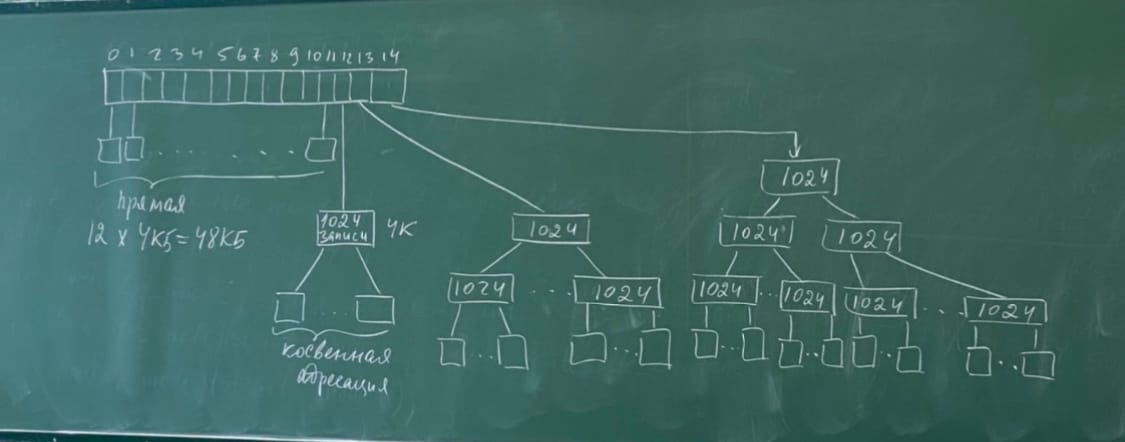 0 1 2 3 4 5 6 7 8 9 10 11 12 13 14
прямая
12 x 4КБ = 48КБ
1024
записи
4К
косвенная
адресация
1024
1024 .... 1024
1024
1024 1024
1024 ... 1024 1024 .... 1024